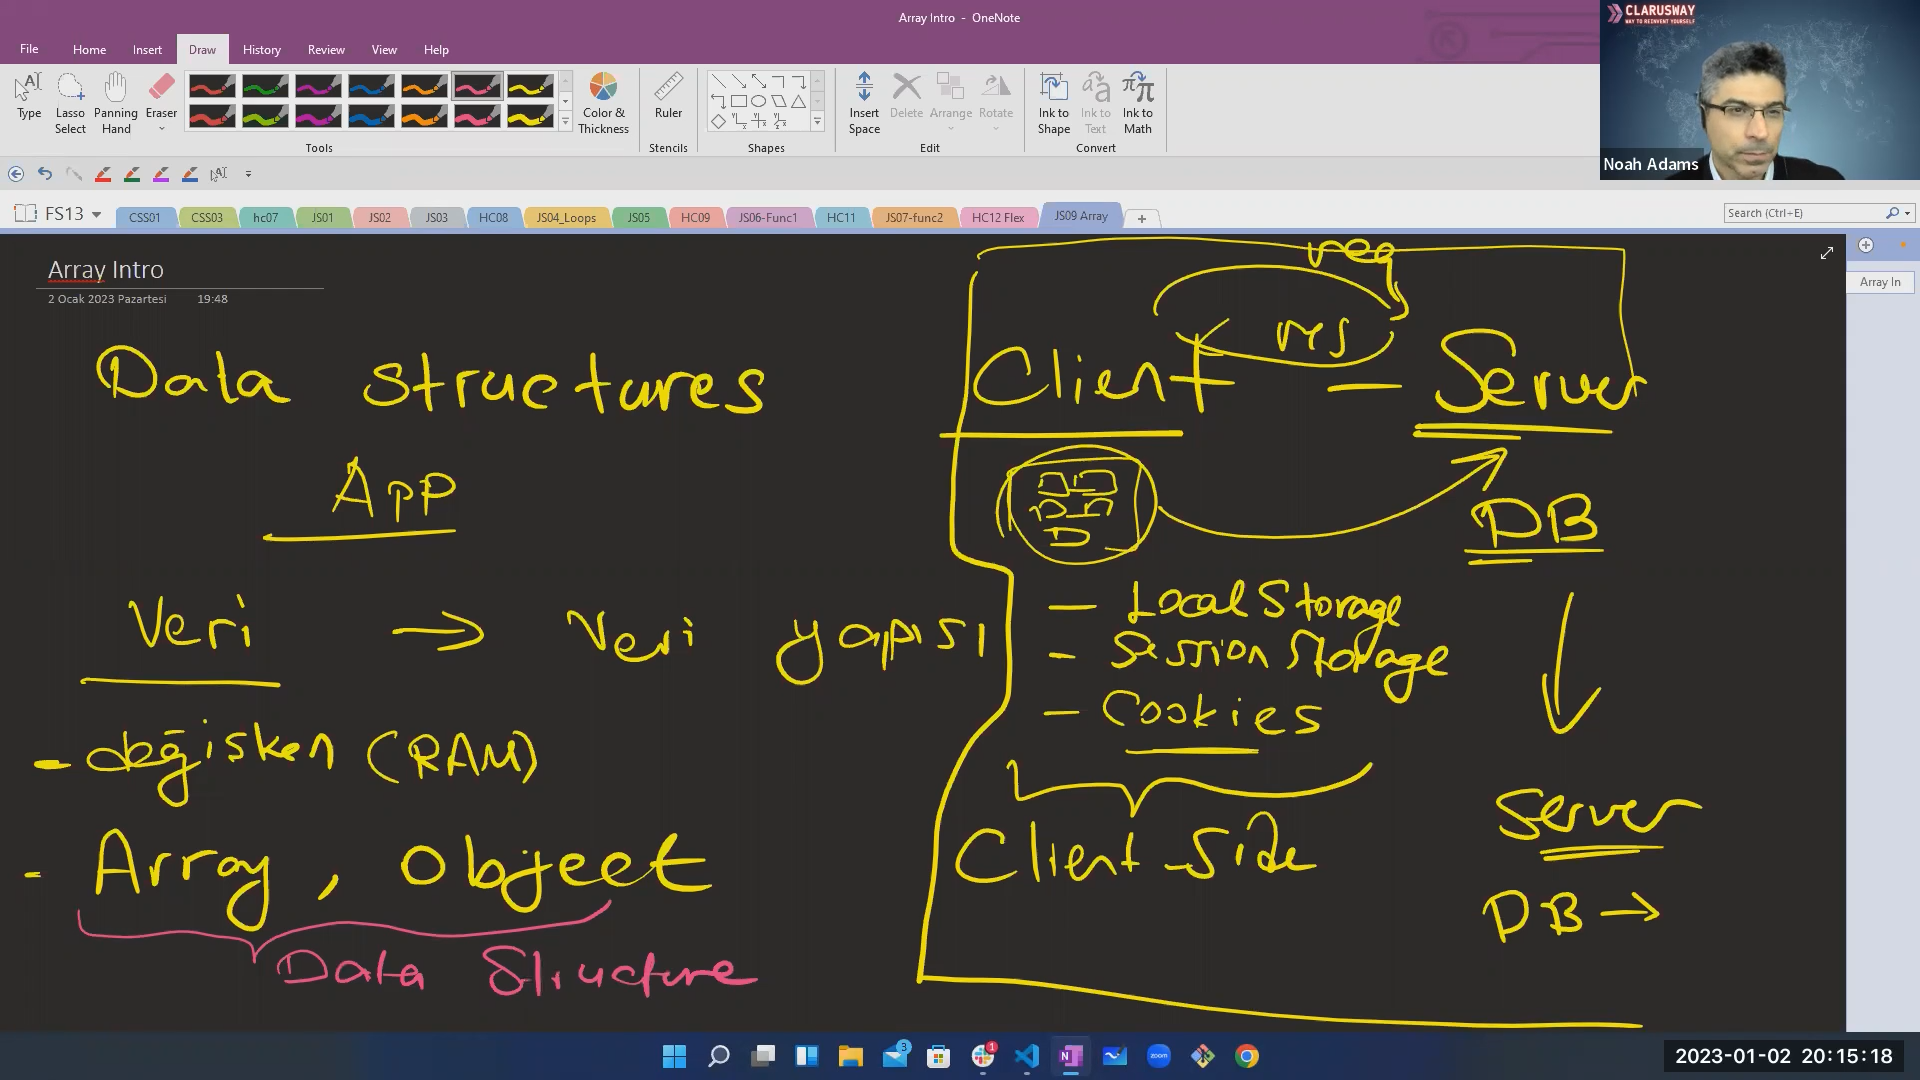 Array Intro - OneNote
CLARUSWAY
WAY TO REINVENT YOURSELF
File Home Insert Draw History Review View Help
Type
Lasso Select
Panning Hand
Eraser
Color & Thickness
Ruler
Insert Space
Delete
Arrange
Rotate
Ink to Shape
Ink to Text
Ink to Math
Tools
Stencils
Shapes
Edit
Convert
Noah Adams
FS13
CSS01 CSS03 hc07 JS01 JS02 JS03 HC08 JS04_Loops JS05 HC09 JS06-Func1 HC11 JS07-func2 HC12 Flex JS09 Array
Search (Ctrl+E)
Array Intro
2 Ocak 2023 Pazartesi 19:48
Array In
Data Structures
App
Veri → Veri yapısı
- değişken (RAM)
- Array, Object
Data Structure
req
res
Client - Server
DB
- Local Storage
- Session Storage
- Cookies
Client Side
Server
DB →
3
1
zoom
2023-01-02 20:15:18